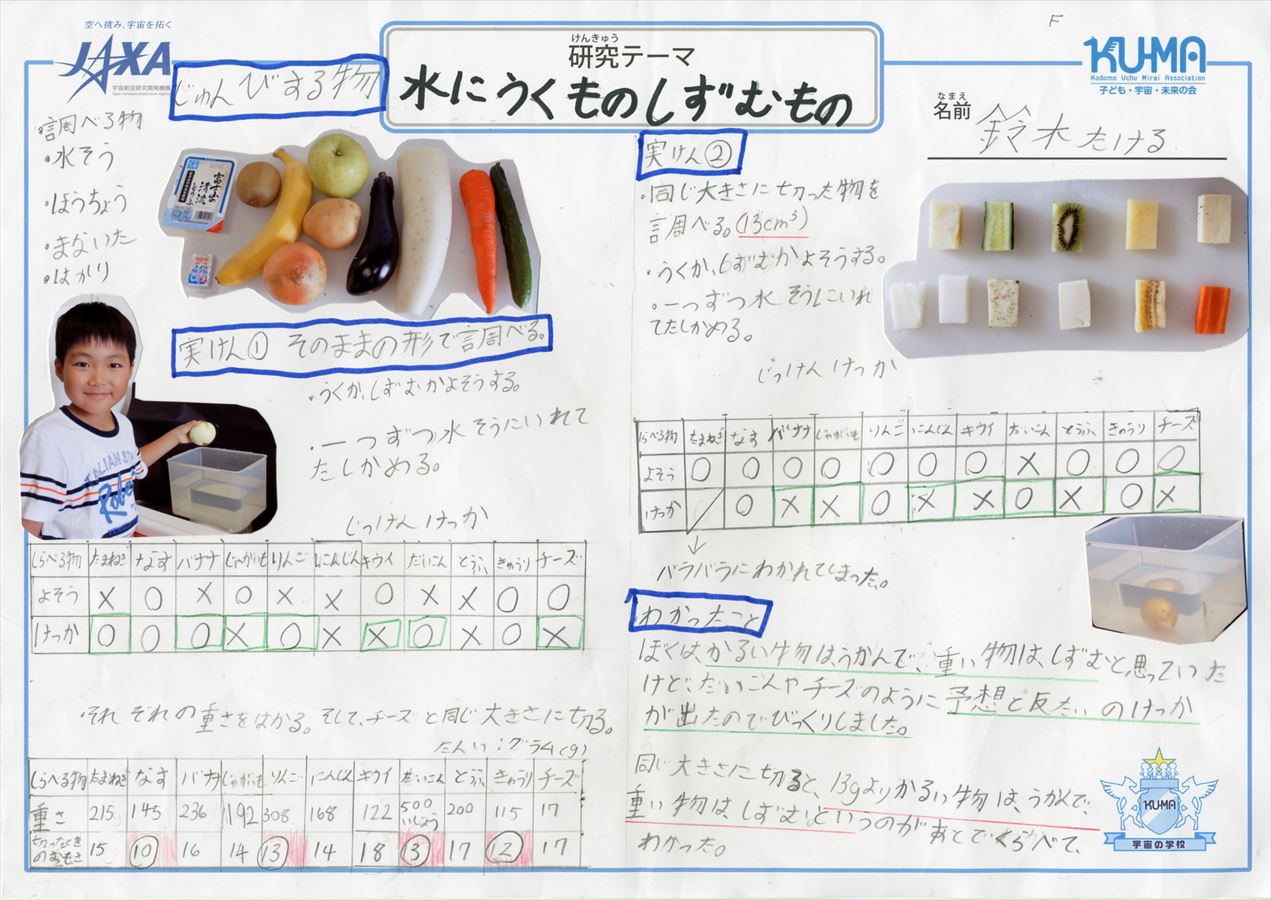 空へ挑み、宇宙を拓く
JAXA
宇宙航空研究開発機構
Japan Aerospace Exploration Agency
けんきゅう
研究テーマ
水にうくものしずむもの
F
KUMA
Kodomo Uchu Mirai Association
子ども・宇宙・未来の会
なまえ
名前 鈴木たける
じゅんびする物
・調べる物
・水そう
・ほうちょう
・まないた
・はかり
富士山の清流
とうふ
実けん① そのままの形で調べる。
・うくか、しずむかよそうする。
・一つずつ水そうにいれて
たしかめる。
じっけんけっか
しらべる物 たまねぎ なす バナナ じゃがいも りんご にんじん キウイ だいこん とうふ きゅうり チーズ
よそう × ○ × ○ × × ○ × × ○ ○
けっか ○ ○ ○ × ○ × × ○ × ○ ×
・それぞれの重さをはかる。そして、チーズと同じ大きさに切る。
たんい:グラム(g)
しらべる物 たまねぎ なす バナナ じゃがいも りんご にんじん キウイ だいこん とうふ きゅうり チーズ
重さ 215 145 236 192 308 168 122 500いじょう 200 115 17
切ったときのおもさ 15 ⑩ 16 14 ⑬ 14 18 ⑬ 17 ⑫ 17
実けん②
・同じ大きさに切った物を
調べる。(13cm³)
・うくか、しずむかよそうする。
・一つずつ水そうにいれ
てたしかめる。
じっけんけっか
しらべる物 たまねぎ なす バナナ じゃがいも りんご にんじん キウイ だいこん とうふ きゅうり チーズ
よそう ○ ○ ○ ○ ○ ○ ○ × ○ ○ ○
けっか ○ × × ○ × × ○ × ○ ×
バラバラにわかれてしまった。
わかったこと
ぼくは、かるい物はうかんで、重い物は、しずむと思っていた
けど、だいこんやチーズのように予想と反たいのけっか
が出たのでびっくりしました。
同じ大きさに切ると、13gよりかるい物は、うかんで、
重い物はしずむというのがあとでくらべて、
わかった。
KU-MA
宇宙の学校